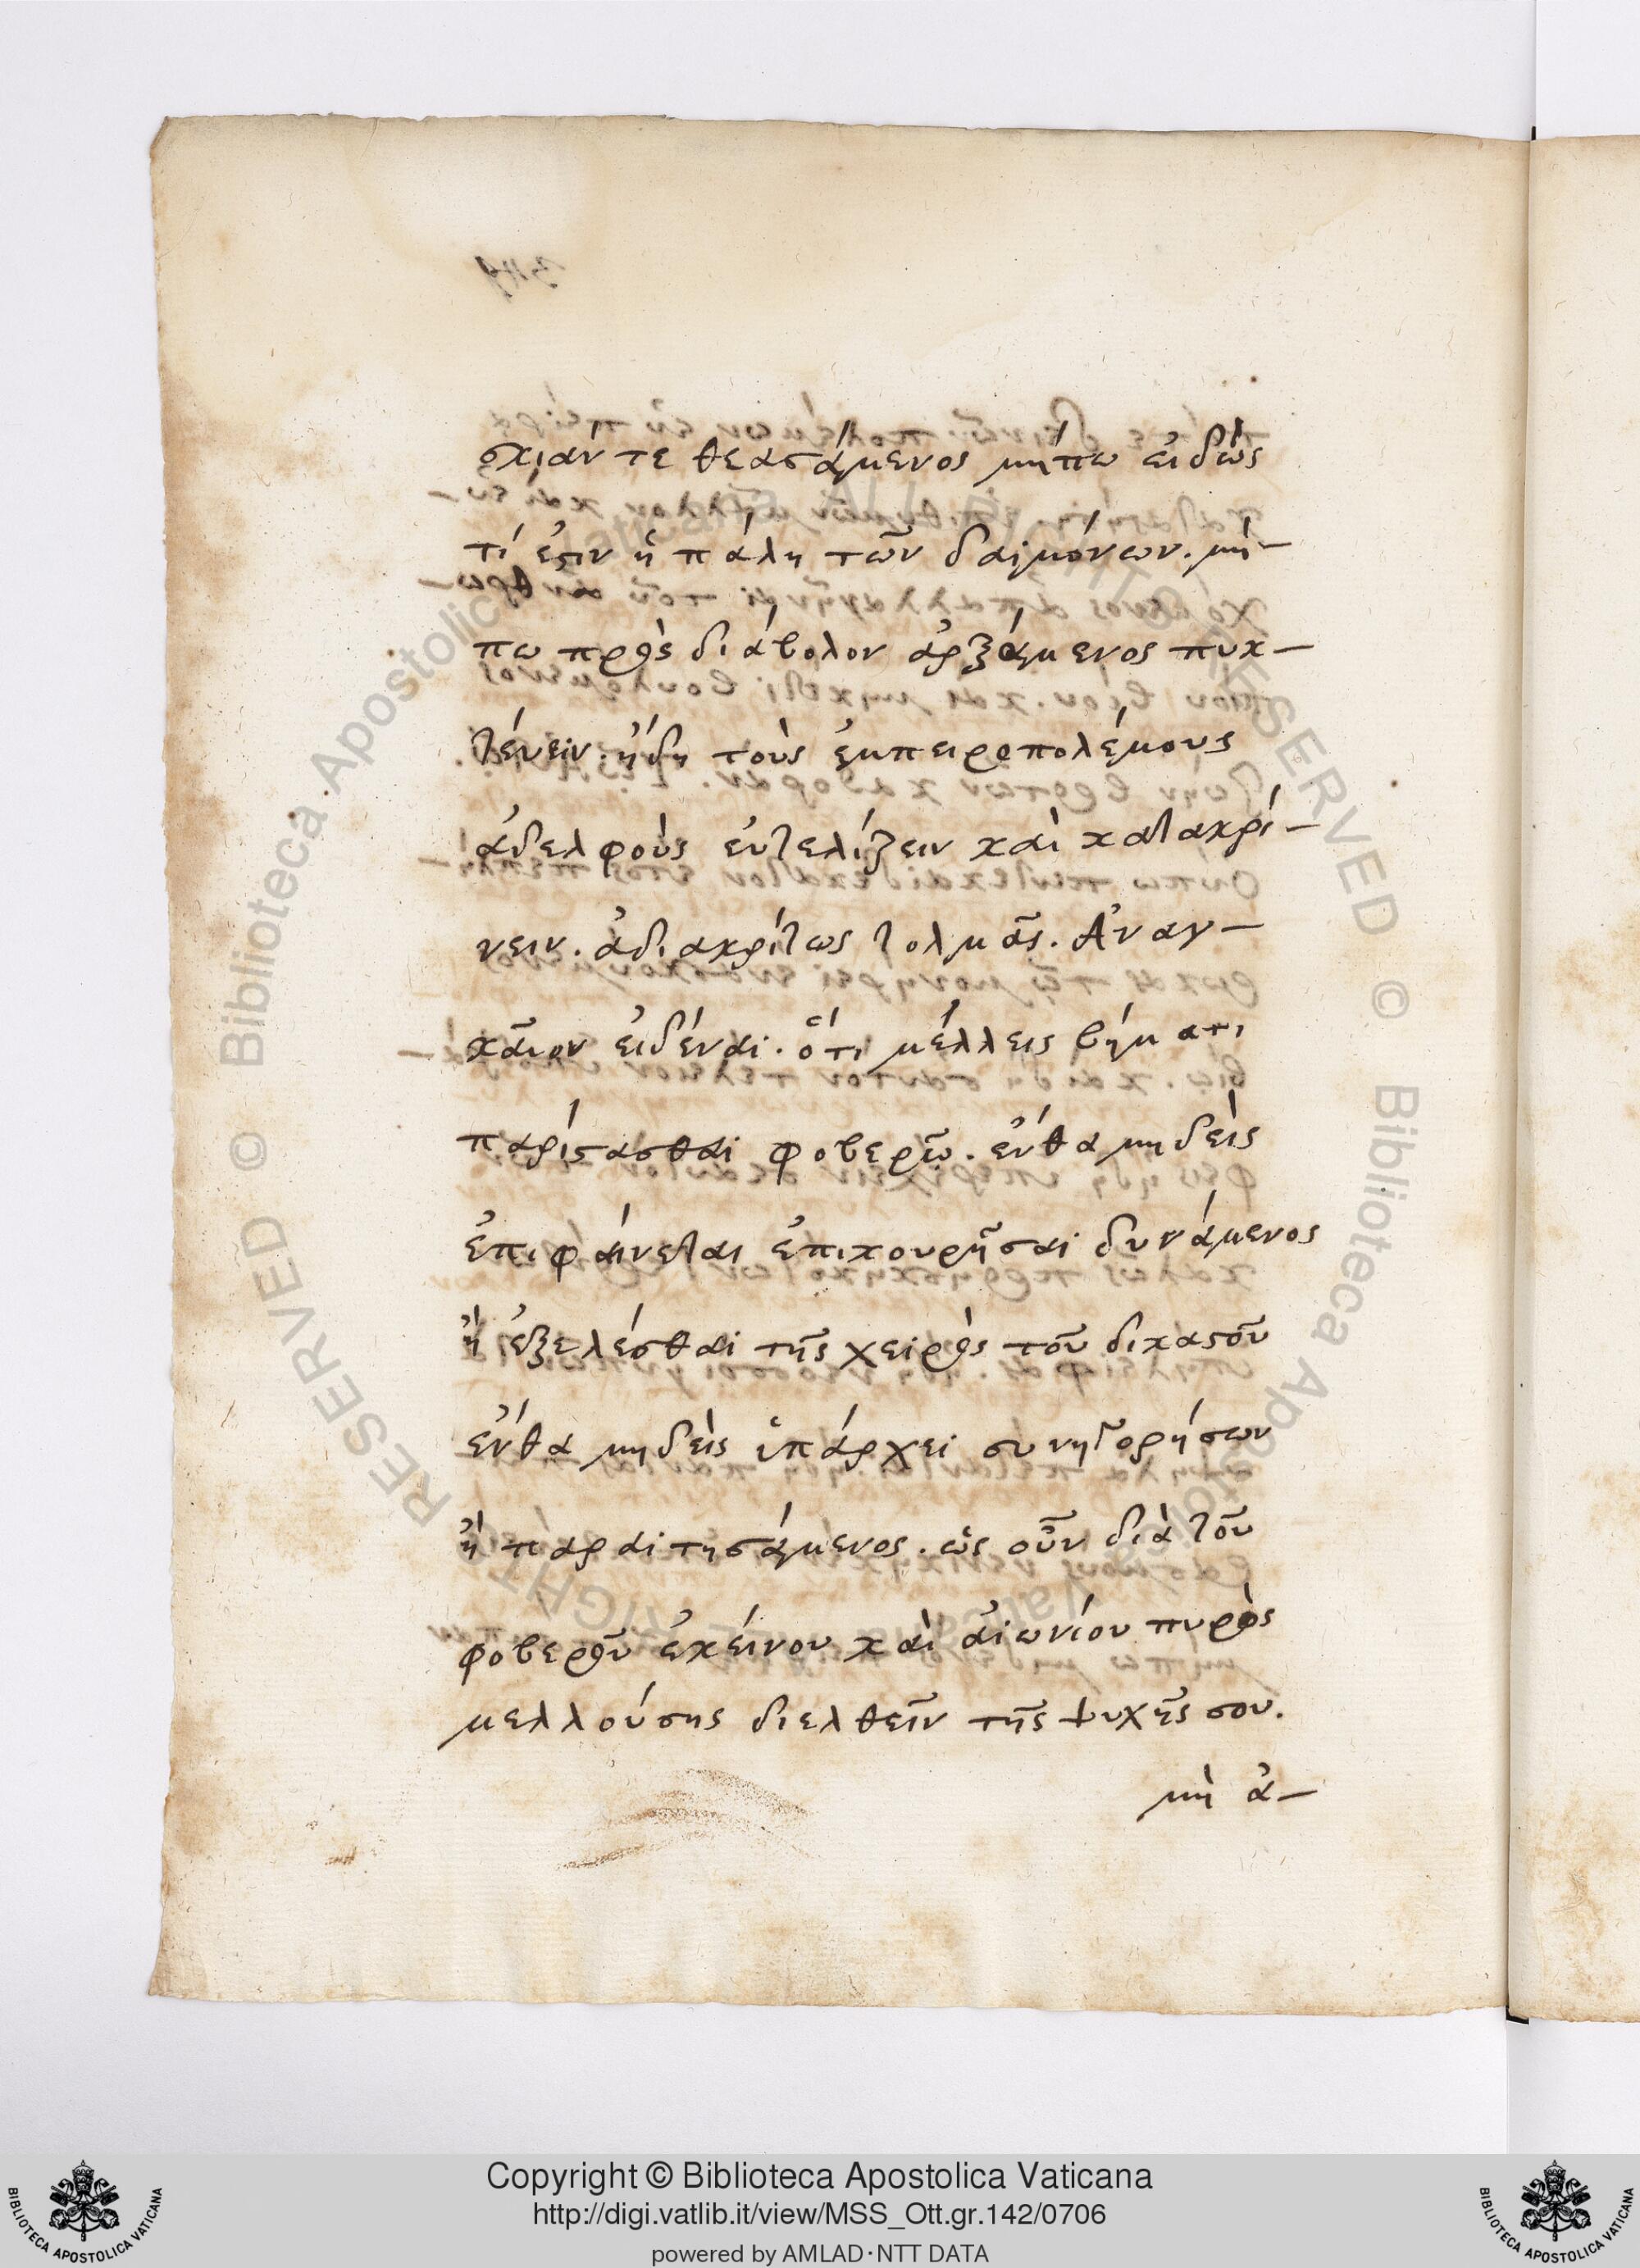 σκιάν τε θεασάμενος μήπω εἰδὼς
τί ἐστιν ἡ πάλη τῶν δαιμόνων. μή-
πω πρὸς διάβολον ἀρξάμενος πυκ-
τένειν ἤδη τοὺς ἐμπειροπολέμους
ἀδελφοὺς εὐτελίζειν καὶ κατακρί-
νειν. ἀδιακρίτως τολμᾶς. Ἀναγ-
καῖον εἰδέναι. ὅτι μέλλεις βήματι
παρίστασθαι φοβερῶ. ἔνθα μηδεὶς
ἐπιφαίνεται ἐπικουρῆσαι δυνάμενος
ἢ ἐξελέσθαι τῆς χειρὸς τοῦ δικαστοῦ
ἔνθα μηδεὶς ὑπάρχει συνηγορήσων
ἢ παραιτησάμενος. ὡς οὖν διὰ τοῦ
φοβεροῦ ἐκείνου καὶ αἰωνίου πυρὸς
μελλούσης διελθεῖν τῆς ψυχῆς σου.
μὴ ἀ-
Copyright © Biblioteca Apostolica Vaticana
http://digi.vatlib.it/view/MSS_Ott.gr.142/0706
powered by AMLAD·NTT DATA
BIBLIOTECA APOSTOLICA VATICANA
BIBLIOTECA APOSTOLICA VATICANA